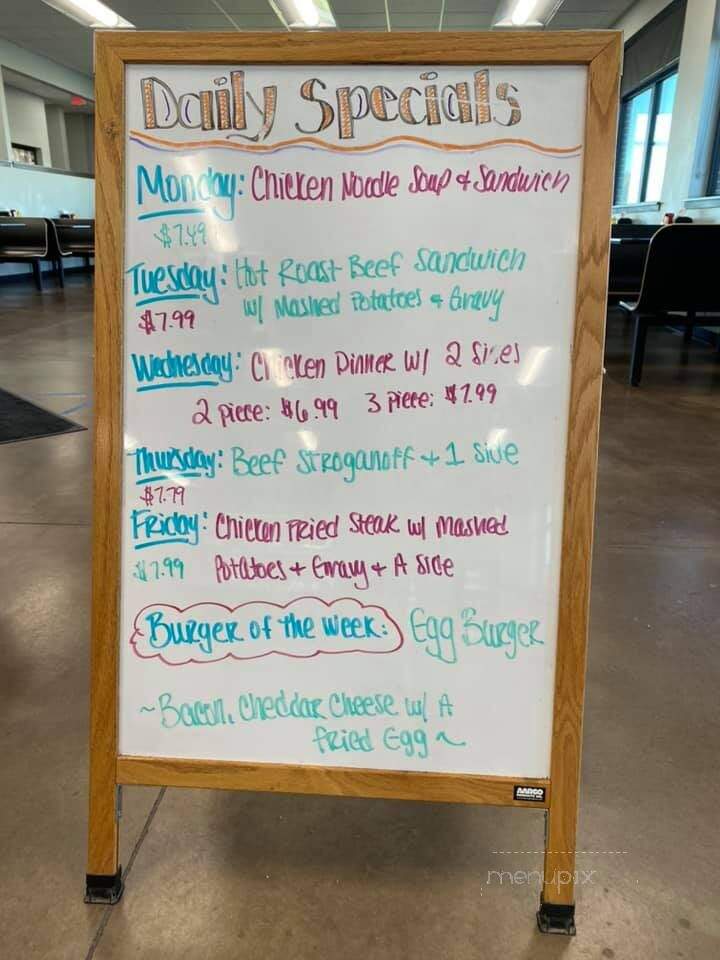 Daily Specials
Monday: Chicken Noodle Soup & Sandwich
$7.49
Tuesday: Hot Roast Beef Sandwich
$7.99 w/ Mashed Potatoes & Gravy
Wednesday: Chicken Dinner w/ 2 Sides
2 piece: $6.99 3 piece: $7.99
Thursday: Beef Stroganoff + 1 Side
$7.79
Friday: Chicken Fried Steak w/ Mashed
$7.99 Potatoes + Gravy + A Side
Burger of the Week: Egg Burger
~Bacon, Cheddar Cheese w/ A
Fried Egg~
AARCO
menupix